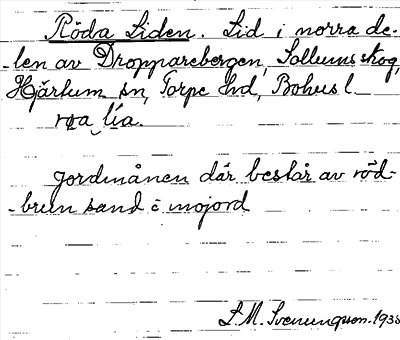 Röda Liden. Lid i norra de-
-len av Dropparebergen, Sollumsskog,
Hjärtum sn, Torpe hd, Bohusl.
røa lia.
Jordmånen där består av röd-
-brun sand o mojord
L. M. Svenungsson. 1938